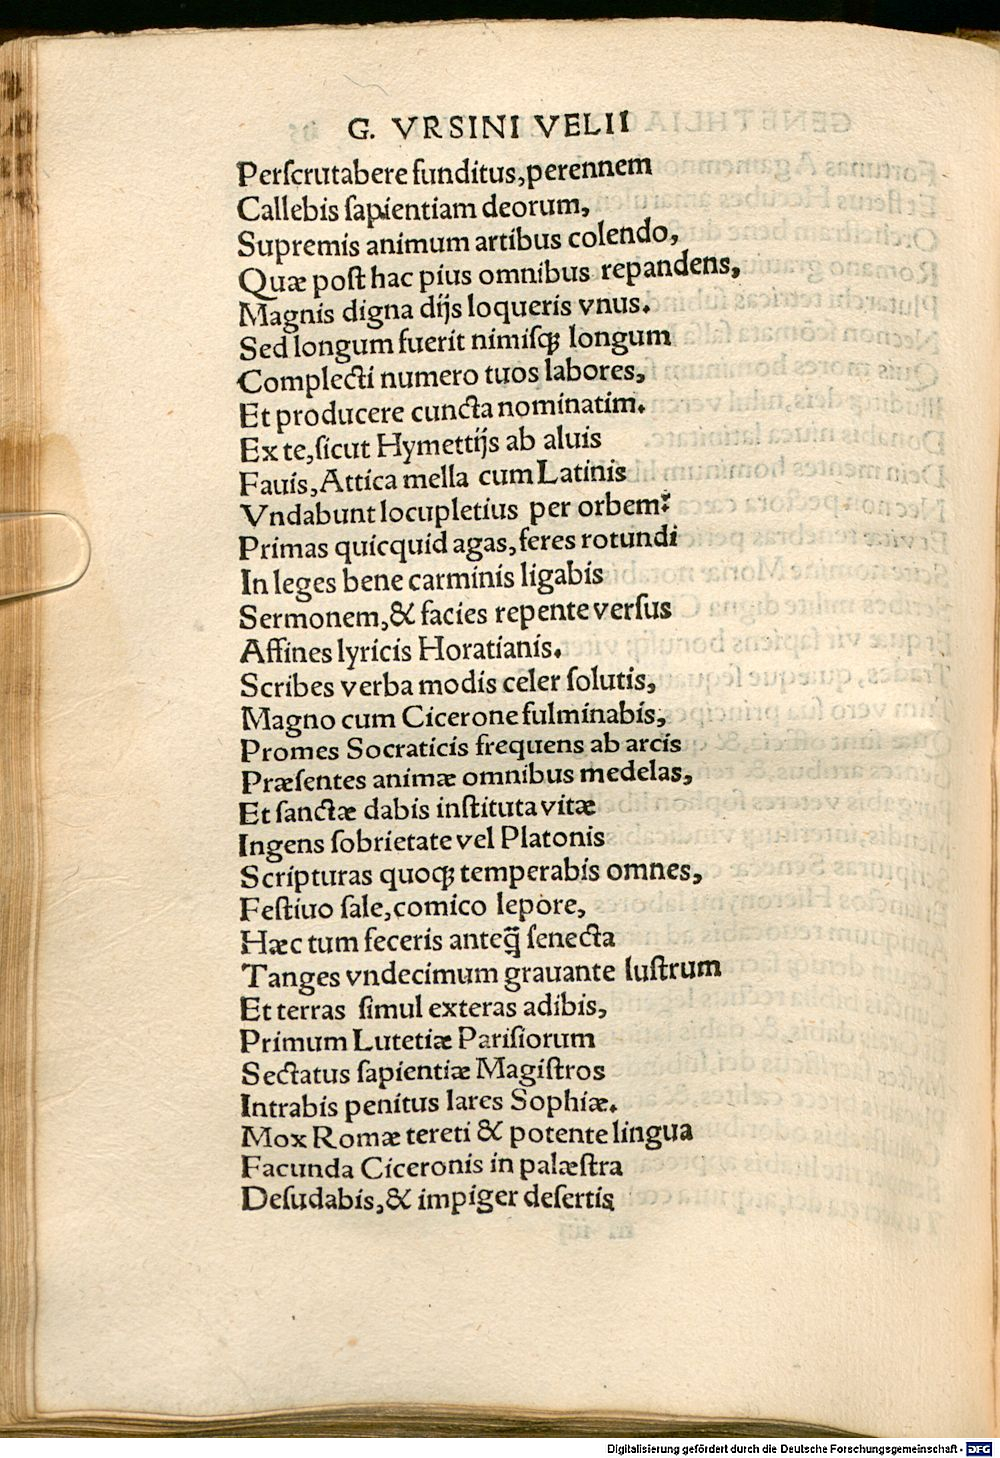 G. VRSINI VELII
Perſcrutabere funditus, perennem
Callebis ſapientiam deorum,
Supremis animum artibus colendo,
Quæ poſt hac pius omnibus repandens,
Magnis digna dijs loqueris vnus.
Sed longum fuerit nimiſq; longum
Complecti numero tuos labores,
Et producere cuncta nominatim.
Ex te, ſicut Hymettijs ab aluis
Fauis, Attica mella cum Latinis
Vndabunt locupletius per orbem:
Primas quicquid agas, feres rotundi
In leges bene carminis ligabis
Sermonem, & facies repente verſus
Affines lyricis Horatianis.
Scribes verba modis celer ſolutis,
Magno cum Cicerone fulminabis,
Promes Socraticis frequens ab arcis
Præſentes animæ omnibus medelas,
Et ſanctæ dabis inſtituta vitæ
Ingens ſobrietate vel Platonis
Scripturas quoq; temperabis omnes,
Feſtiuo ſale, comico lepore,
Hæc tum feceris anteq̃ ſenecta
Tanges vndecimum grauante luſtrum
Et terras ſimul exteras adibis,
Primum Lutetiæ Pariſiorum
Sectatus ſapientiæ Magiſtros
Intrabis penitus lares Sophiæ.
Mox Romæ tereti & potente lingua
Facunda Ciceronis in palæſtra
Deſudabis, & impiger deſertis
Digitalisierung gefördert durch die Deutsche Forschungsgemeinschaft - DFG